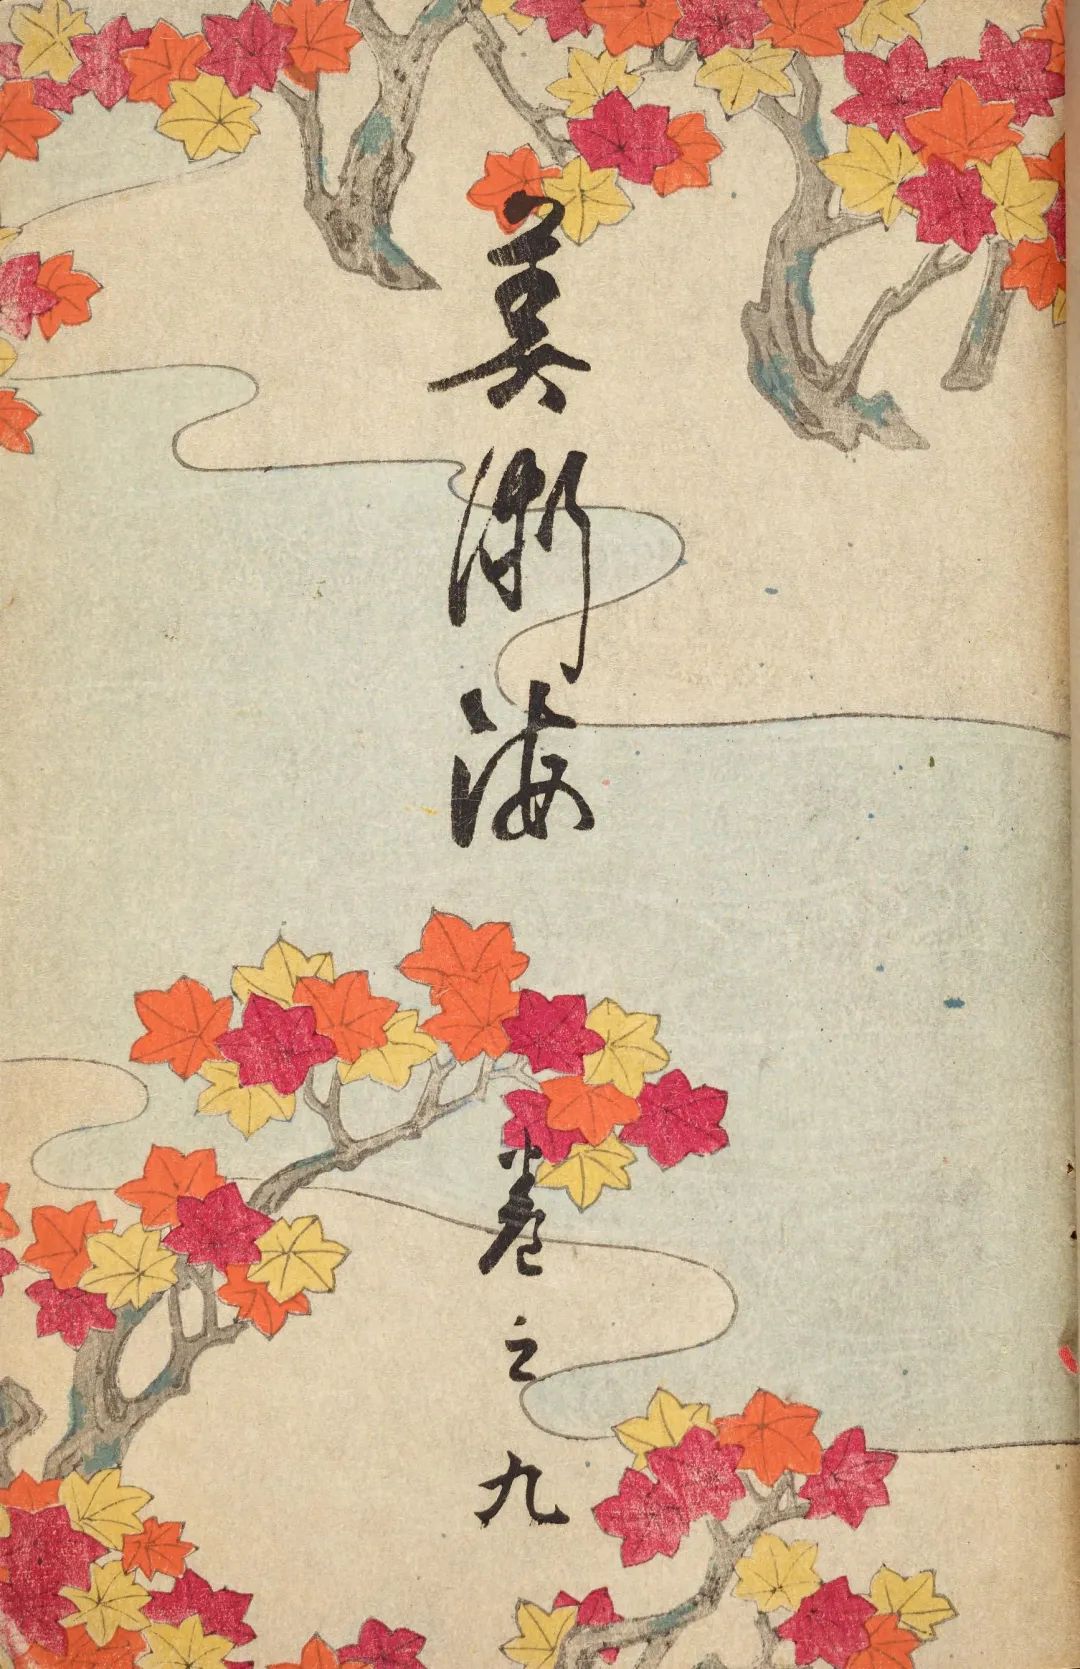 美術海
巻之九